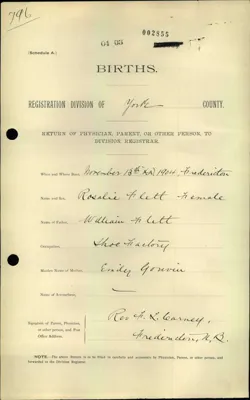 796
(Schedule A.)
002855
BIRTHS.
REGISTRATION DIVISION OF York COUNTY.
RETURN OF PHYSICIAN, PARENT, OR OTHER PERSON, TO
DIVISION REGISTRAR.
When and Where Born, November 13th 1904 Fredericton
Name and Sex, Rosalie Flett Female
Name of Father, William Flett
Occupation, Shoe Factory
Maiden Name of Mother, Emily
Name of Accoucheur, —
Signature of Parent, Physician,
or other person, and Post
Office Address.
Rev F. L. Carney,
Fredericton, N.B.
NOTE.—The above Return is to be filled in and by Physician, Parent, or other person, and
forwarded to the Division Registrar.